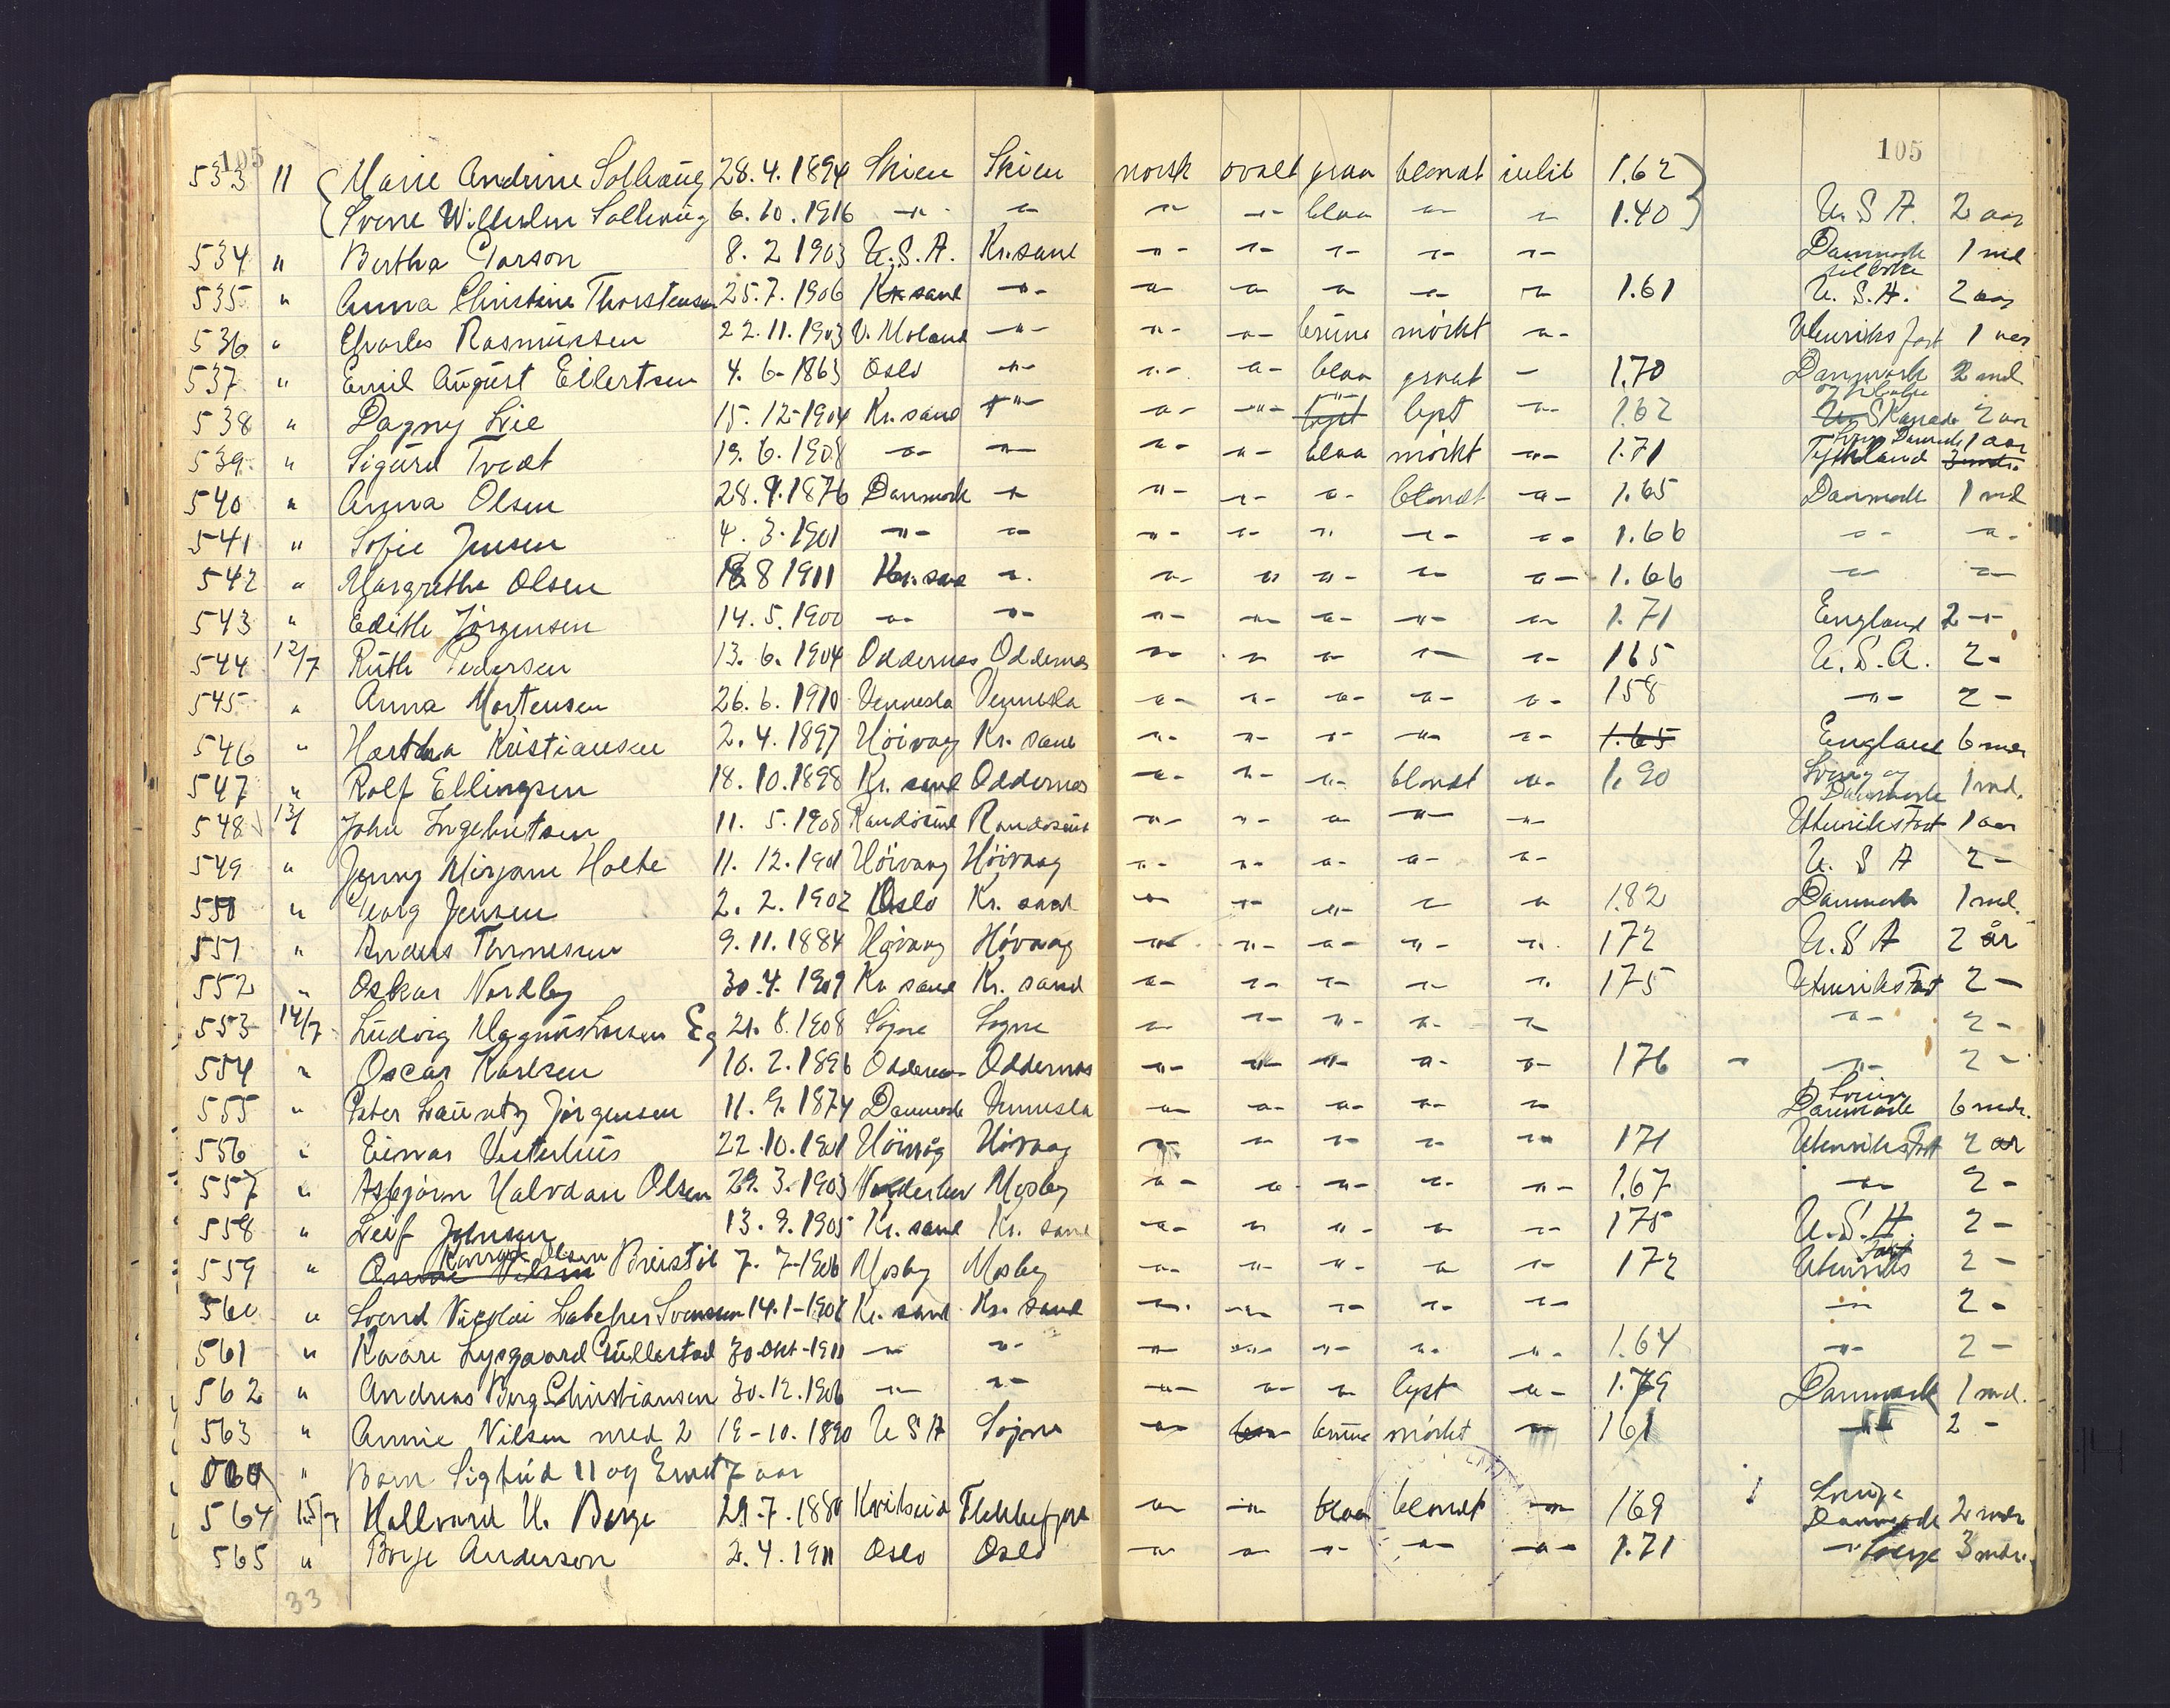 105 105
533 11 Marie Andrine Solhaug 28.4.1894 Skien Skien norsk ovalt graa blondt inlit 1.62
Sverre Wilhelm Solhaug 6.10.1916 -"- -"- -"- -"- blaa -"- -"- 1.40 U.S.A. 2 aar
534 " Bertha Larson 8.2 1903 U.S.A. Kr.sand -"- -"- -"- -"- -"- Danmark 1 md
535 " Anna Christine Thorstensen 25.7.1906 Kr sand -"- -"- -"- -"- -"- -"- 1.61 U.S.A. 2 aar
536 " Charles Rasmussen 22.11.1903 V. Moland -"- -"- -"- brune mörkt -"- Utenriks fart 1 aar
537 " Emil August Ellertsen 4.6-1863 Oslo -"- -"- -"- blaa graat - 1.70 Danmark 2 md
538 " Dagny Lie 15.12-1904 Kr.sand -"- -"- -"- lyst -"- lyst -"- 1.62 Kanada 2 aar
539 " Sigurd Tvedt 19.6.1908 -"- -"- -"- -"- blaa mörkt -"- 1.71 Tyskland Danmark 1 aar 3 mdr.
540 " Anna Olsen 28.9.1876 Danmark -"- -"- -"- -"- blondt -"- 1.65 Danmark 1 md
541 " Sofie Jensen 4.3.1901 -"- -"- -"- -"- -"- -"- -"- 1.66 -"- -"-
542 " Margrethe Olsen 18.8 1911 Kr.sand -"- -"- -"- -"- -"- -"- 1.66 -"- -"-
543 " Edith Jörgensen 14.5.1900 -"- -"- -"- -"- -"- -"- -"- 1.71 England 2 -"-
544 12/7 Ruth Pedersen 13.6.1904 Oddernes Oddernes -"- -"- -"- -"- -"- 165 U.S.A. 2 -
545 " Anna Mortensen 26.6.1910 Vennesla Vennesla -"- -"- -"- -"- -"- 158 -"- 2 -
546 " Hartha Kristiansen 2.4.1897 Höivag Kr. sand -"- -"- -"- -"- -"- 1.65 England 6 mdr
547 " Rolf Ellingsen 18.10.1898 Kr. sand Oddernes -"- -"- -"- blondt -"- 1.90 Sverig og Danmark 1 md.
548 13/ John Ingebretsen 11.5.1908 Randösund Randösund -"- -"- -"- -"- -"- Utenriks Fart 1 aar
549 " Jenny Mirjam Holte 11.12.1901 Höivaag Höivaag -"- -"- -"- -"- -"- U.S A 2 -
550 " Georg Jensen 2.2.1902 Oslo Kr. sand -"- -"- -"- -"- -"- 1.82 Danmark 1 md.
551 " Anders Tonnesen 9.11.1884 Hövaag Hövaag -"- -"- -"- -"- -"- 172 U.S A 2 år
552 " Oskar Nordby 30.4.1909 Kr sand Kr. sand -"- -"- -"- -"- -"- 175 Utenriks Fart 2 -
553 14/7 Ludvig Magnus Larsen Eg 21.8.1908 Sögne Sogne -"- -"- -"- -"- -"- -"- 2 -
554 " Oscar Karlsen 16.2.1896 Oddernes Oddernes -"- -"- -"- -"- -"- 176 - -"- 2 -
555 " Peter Lauritz Jörgensen 11.9.1874 Danmark Vennesla -"- -"- -"- -"- -"- Danmark 6 mdr.
556 " Einar Vesterhus 22.10.1901 Höivåg Hövaag -"- -"- -"- -"- -"- 171 Utenriks Fart 2 år
557 " Asbjörn Halvdan Olsen 29.3.1903 Mosby -"- -"- -"- -"- -"- 1.67 -"- 2 -
558 " Leif Johnsen 13.9.1905 Kr. sand Kr. sand -"- -"- -"- -"- -"- 175 U.S.A. 2 -
559 " Olsen Breistöl 7.7-1906 Mosby Mosby -"- -"- -"- -"- -"- 172 Utenriks Fart 2 -
560 " Svend Nicolai Svensen 14.1-1908 Kr. sand Kr. sand -"- -"- -"- -"- -"- -"- 2 -
561 " Kaare Lysgaard Gullestad 30-Okt-1911 -"- -"- -"- -"- -"- -"- -"- 1.64 -"- 2 -
562 " Andreas Berg Christiansen 30.12.1906 -"- -"- -"- -"- -"- lyst -"- 1.79 Danmark 1 md.
563 " Annie Nilsen med 2 18-10.1890 U S A Sogne -"- brune mörkt -"- 161 -"- 2 -
" Barn Sigfrid 11 og Ernst 7 aar
564 15/7 Hallvard H. Berge 29.7.1880 Kviteseid Flekkefjord -"- -"- blaa blondt -"- 169 Sverige Danmark 2 mdr
565 " Borje Anderson 2.4.1911 Oslo Oslo -"- -"- -"- -"- -"- 1.71 -"- Sverge 3 mdr.
33